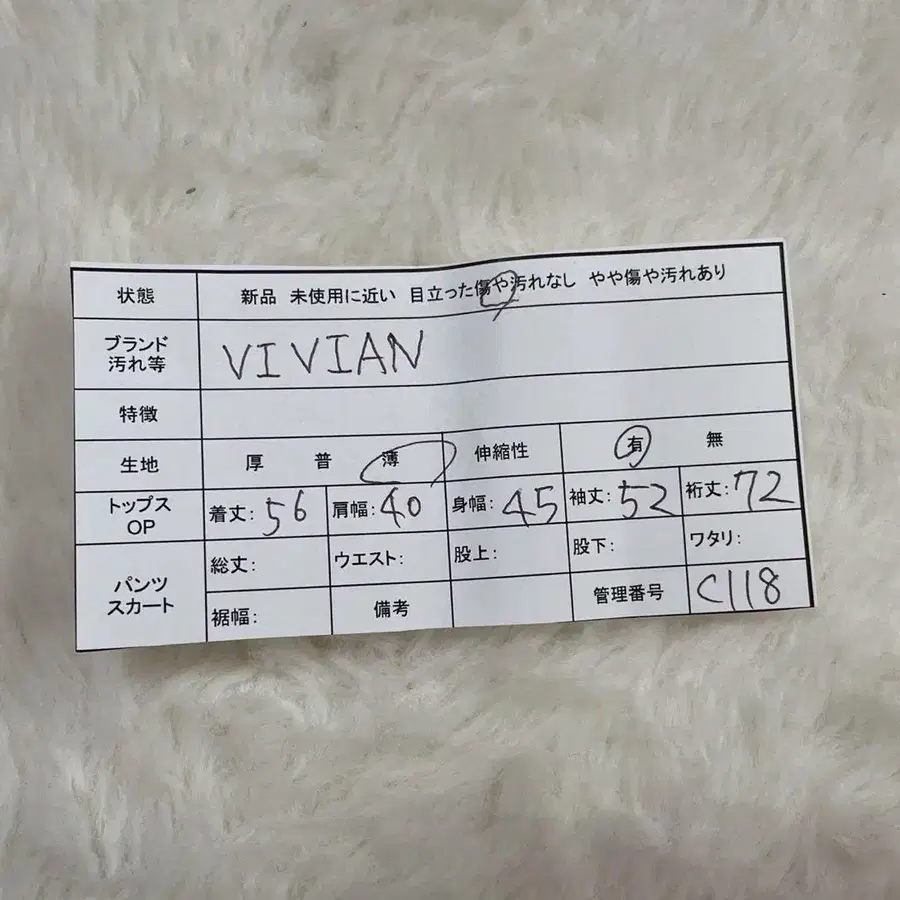 状態 新品 未使用に近い 目立った傷や汚れなし やや傷や汚れあり
ブランド
汚れ等
VIVIAN
特徴
生地 厚 普 薄 伸縮性 有 無
トップス
OP
着丈: 56 肩幅: 40 身幅: 45 袖丈: 52 裄丈: 72
パンツ
スカート
総丈: ウエスト: 股上: 股下: ワタリ:
裾幅: 備考 管理番号 C118